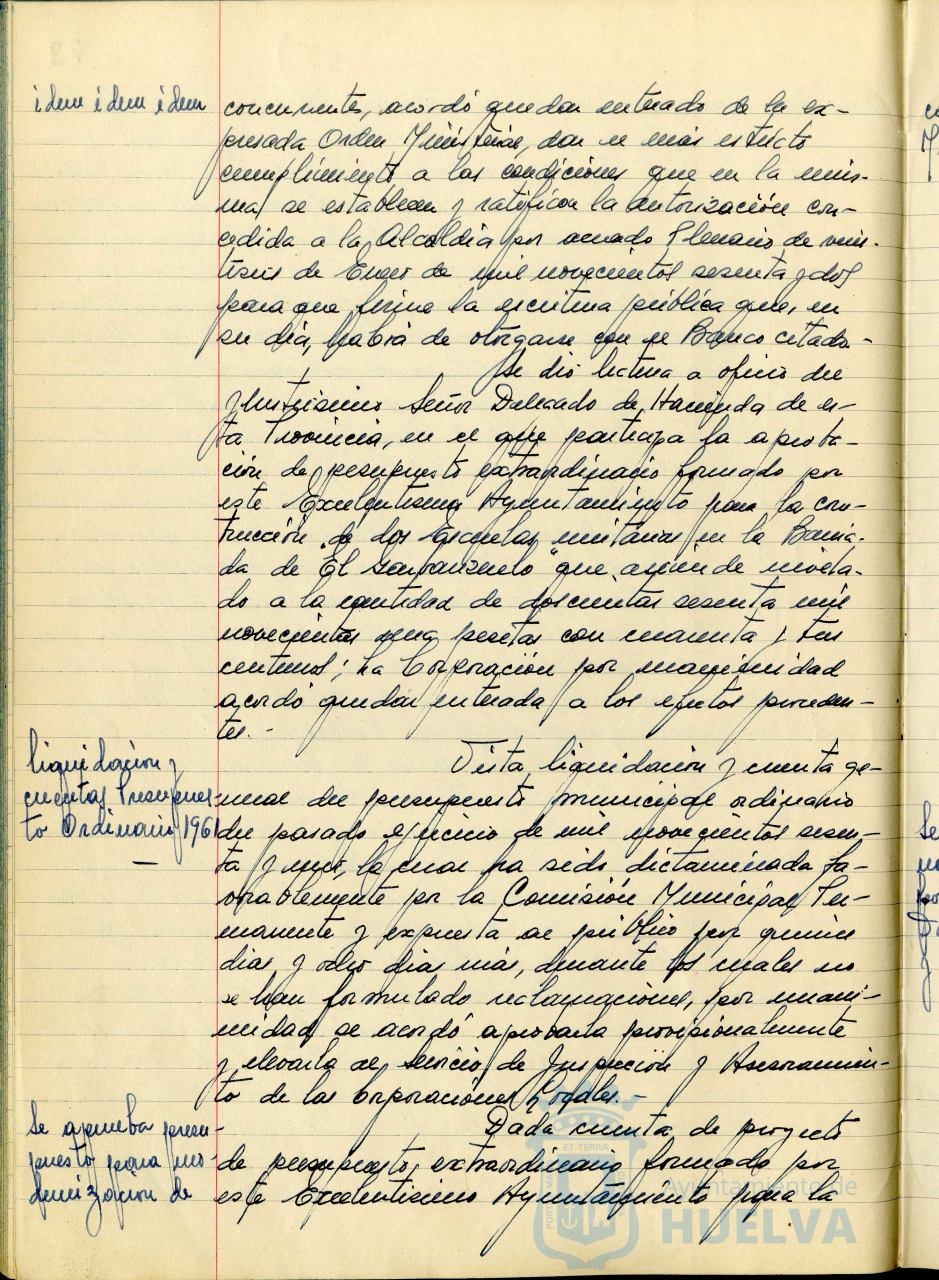 idem idem idem
concurrentes, acordó quedar enterado de la ex-
presada Orden Ministerial, dar el más estricto
cumplimiento a las condiciones que en la mis-
ma se establecen y ratificar la autorización con-
cedida a la Alcaldía por acuerdo Plenario de vein-
tiseis de Enero de mil novecientos sesenta y dos
para que firme la escritura pública que, en
su día, habrá de otorgarse con el Banco citado.-
Se dió lectura a oficio del
Ilustrísimo Señor Delegado de Hacienda de es-
ta Provincia, en el que participa la aproba-
ción de presupuesto extraordinario formado por
este Excelentísimo Ayuntamiento para la cons-
trucción de dos Escuelas unitarias en la Barria-
da de El
que asciende nivela-
do a la cantidad de doscientas sesenta mil
novecientas una pesetas con cuarenta y tres
centimos; La Corporación por unanimidad
acordó quedar enterada a los efectos proceden-
tes.-
liquidación y
cuentas Presupues-
to Ordinario 1961
Vista liquidación y cuenta ge-
neral del presupuesto municipal ordinario
del pasado ejercicio de mil novecientos sesen-
ta y uno, la cual ha sido dictaminada fa-
vorablemente por la Comisión Municipal Per-
manente y expuesta al público por quince
dias y ocho dias más, durante los cuales no
se han formulado reclamaciones, por unani-
midad se acordó aprobarla provisionalmente
y elevarla al Servicio de Inspección y Asesoramien-
to de las Corporaciones Locales.-
Se aprueba presu-
puesto para mo-
dernización de
Dada cuenta de proyecto
de presupuesto extraordinario formado por
este Excelentísimo Ayuntamiento para la
Ayuntamiento de
HUELVA